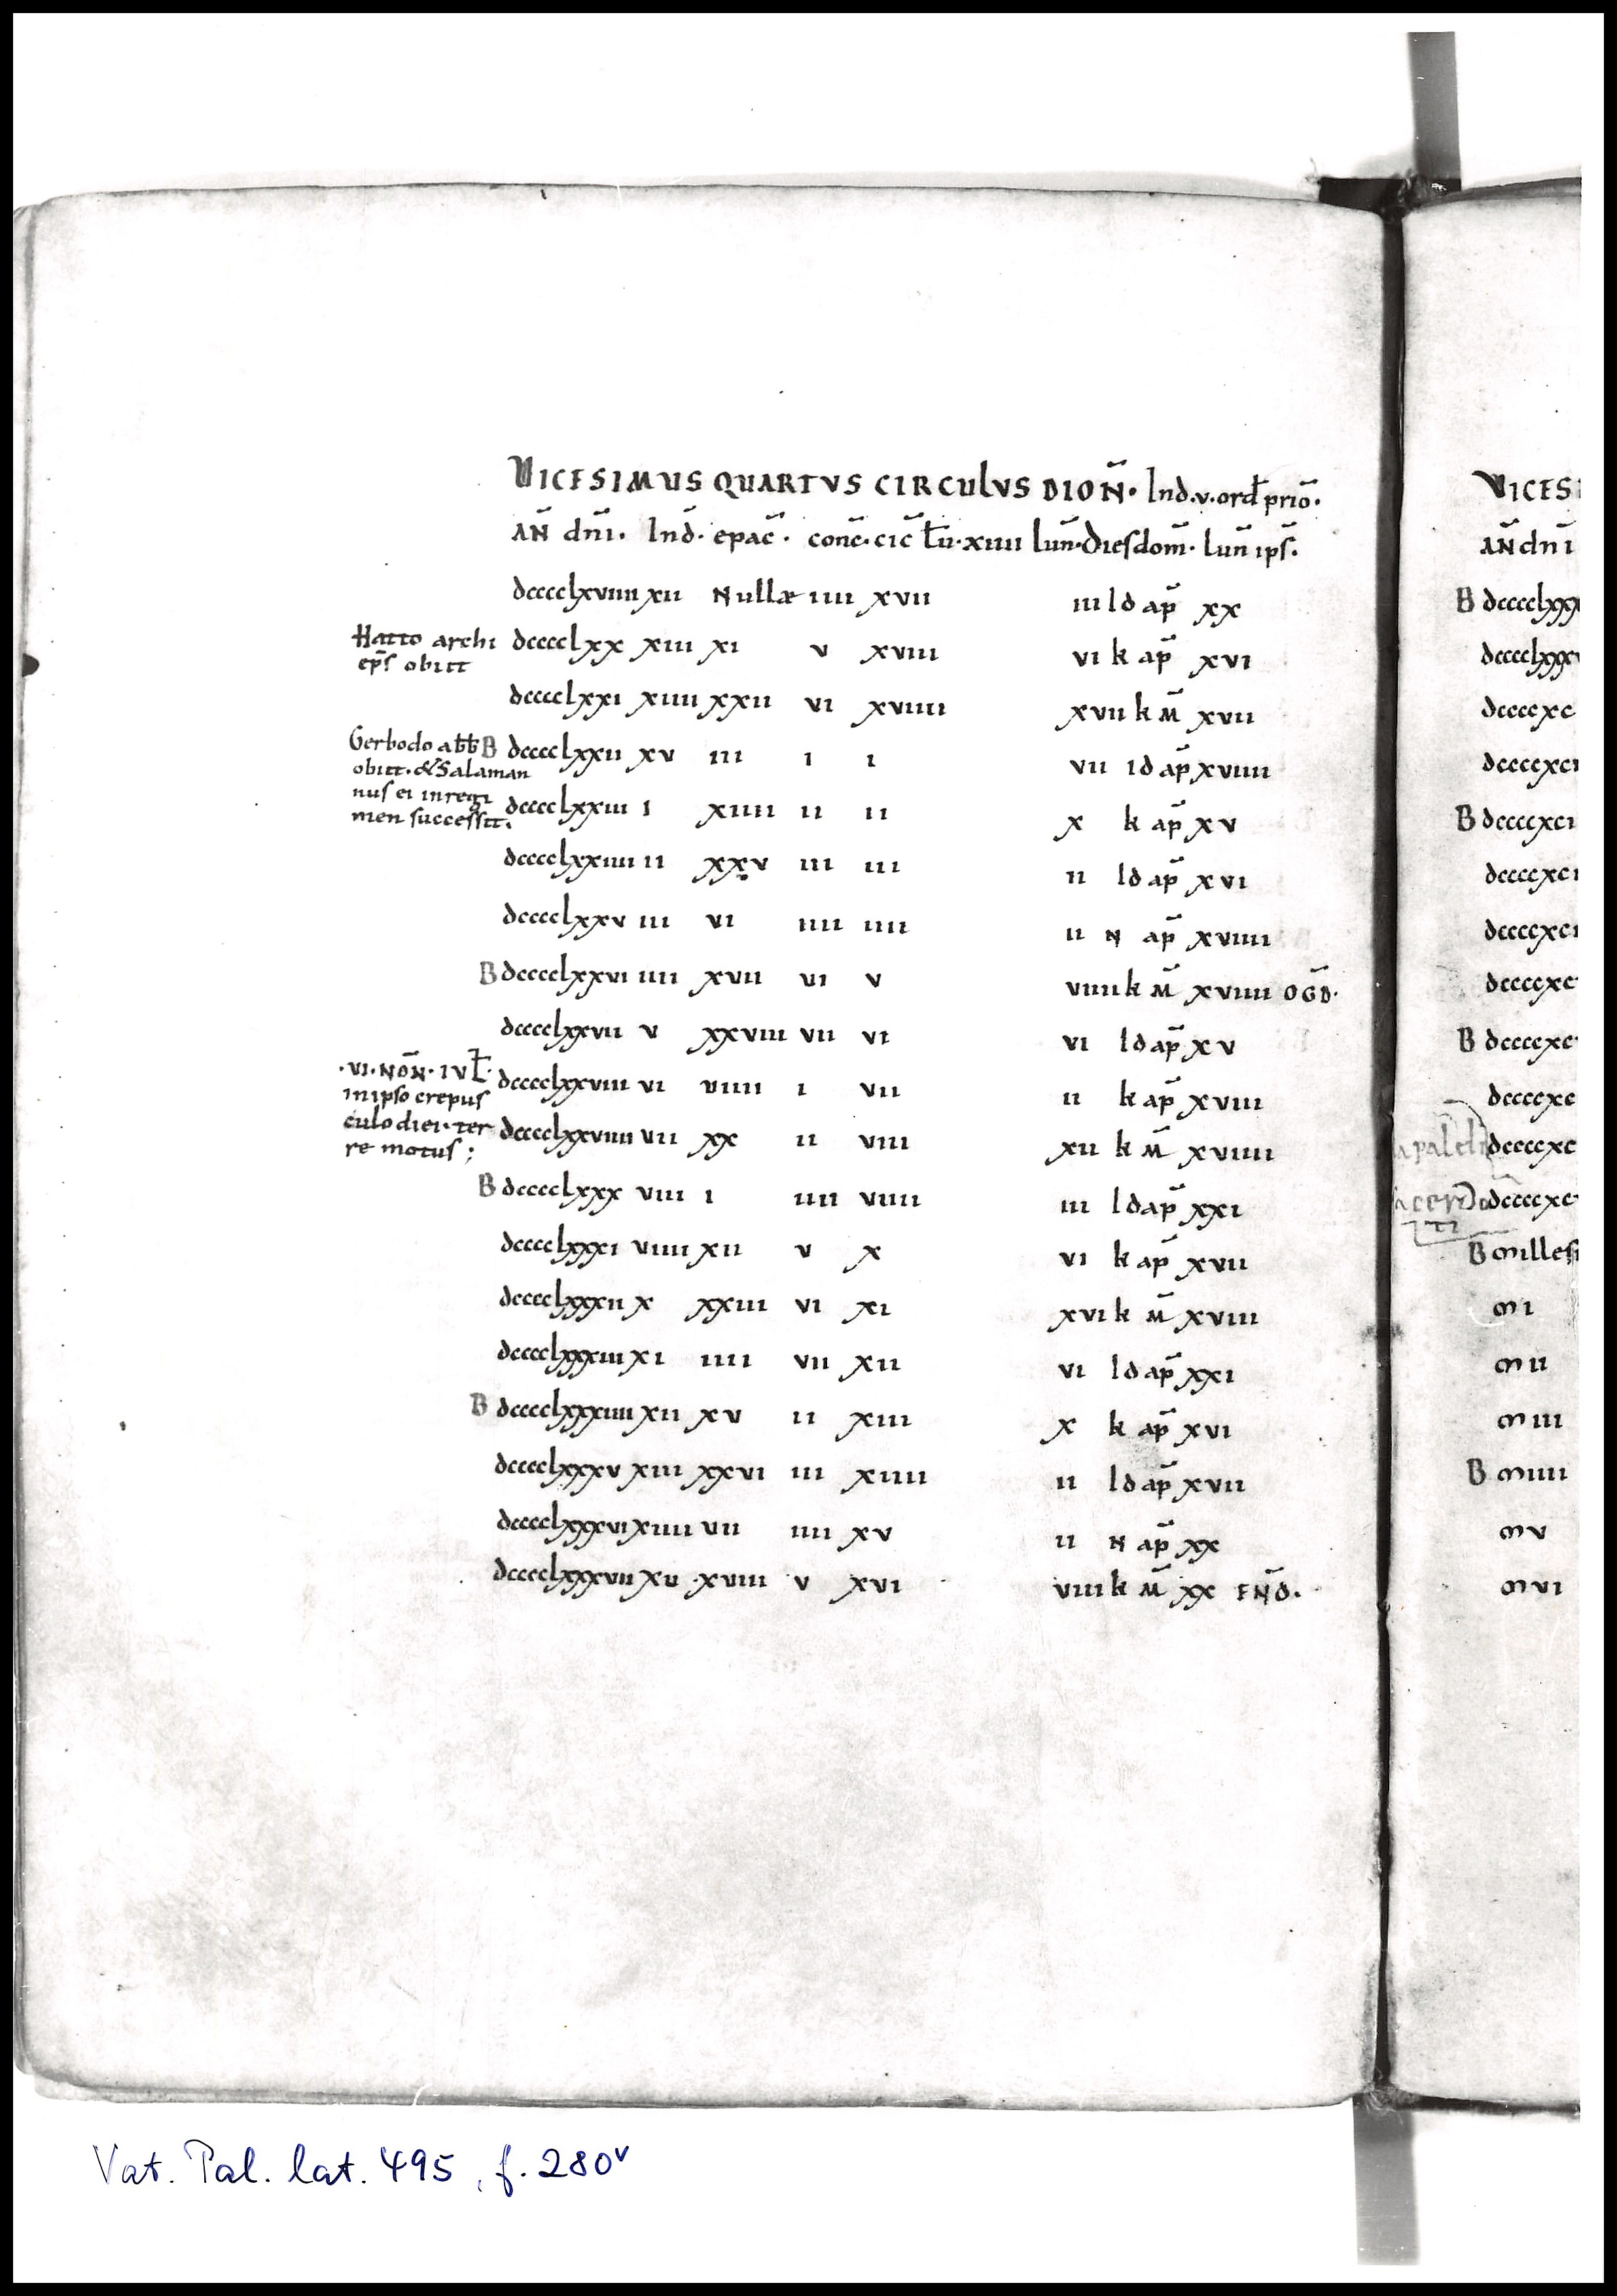 VICESIMUS QUARTVS CIRCULVS DIOÑ. Ind.v.ord prio̅.
AÑ dn̅i. Ind̅. epac̅. conc̅. cic̅ lu̅. xiiii lun̅. Dies dom̅. lun̅ ips̅.
dcccclxviiii xii Nullæ iiii xvii iii Id ap̅ xx
Hatto archi dcccclxx xiii xi v xviii vi k ap̅ xvi
ep̅s obiit
dcccclxxi xiiii xxii vi xviiii xvii k M̅ xvii
Gerbodo abb B dcccclxxii xv iii i i vii id ap̅ xviiii
obiit. & Salaman
nus ei in regi
men successit. dcccclxxiii I xiiii ii ii x k ap̅ xv
dcccclxxiiii ii xxv iii iii ii Id ap̅ xvi
dcccclxxv iii vi iiii iiii ii N ap̅ xviiii
B dcccclxxvi iiii xvii vi v viiii k M̅ xviiii OGD̅.
dcccclxxvii v xxviii vii vi vi Id ap̅ xv
.VI. NON̅. IVL̅. dcccclxxviii vi viiii i vii ii k ap̅ xviii
in ipso crepus
culo diei. ter dcccclxxviiii vii xx ii viii xii k M̅ xviiii
re motus;
B dcccclxxx viii i iiii viiii iii Id ap̅ xxi
dcccclxxxi viiii xii v x vi k ap̅ xvii
dcccclxxxii x xxiii vi xi xvi k M̅ xviii
dcccclxxxiii xi iiii vii xii vi Id ap̅ xxi
B dcccclxxxiiii xii xv ii xiii x k ap̅ xvi
dcccclxxxv xiii xxvi iii xiiii ii Id ap̅ xvii
dcccclxxxvi xiiii vii iiii xv ii N ap̅ xx
dcccclxxxvii xv xviii v xvi viiii k M̅ xx EN̅D.
VICES
AN̅ dn̅i
B dcccclxxx
dcccclxxx
dccccxc
dccccxci
B dccccxci
dccccxci
dccccxci
dccccxc
B dccccxc
dccccxc
dccccxc
dccccxc
B milles
mi
mii
miii
B miiii
mv
mvi
Vat. Pal. lat. 495, f. 280v